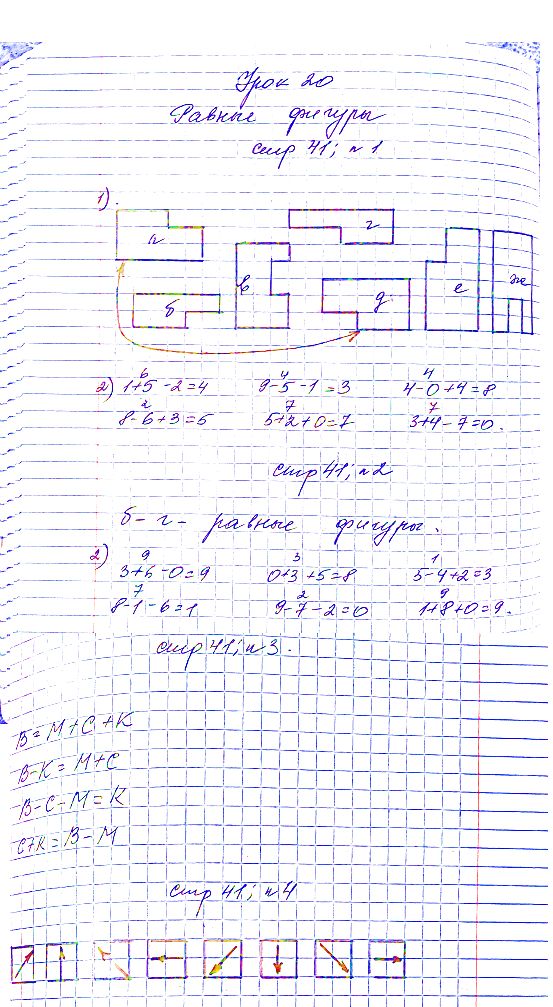 Урок 20
Равные фигуры
стр 41; n 1
1).
а
г
в
е
ж
б
д
6 4 4
2) 1+5-2=4 9-5-1=3 4-0+4=8
2 7 7
8-6+3=5 5+2+0=7 3+4-7=0.
стр 41; n 2
б - г - равные фигуры.
9 3 1
2) 3+6-0=9 0+3+5=8 5-4+2=3
7 2 9
8-1-6=1 9-7-2=0 1+8+0=9.
стр 41; n 3.
В=М+С+К
В-К=М+С
В-С-М=К
С+К=В-М
стр 41; n 4